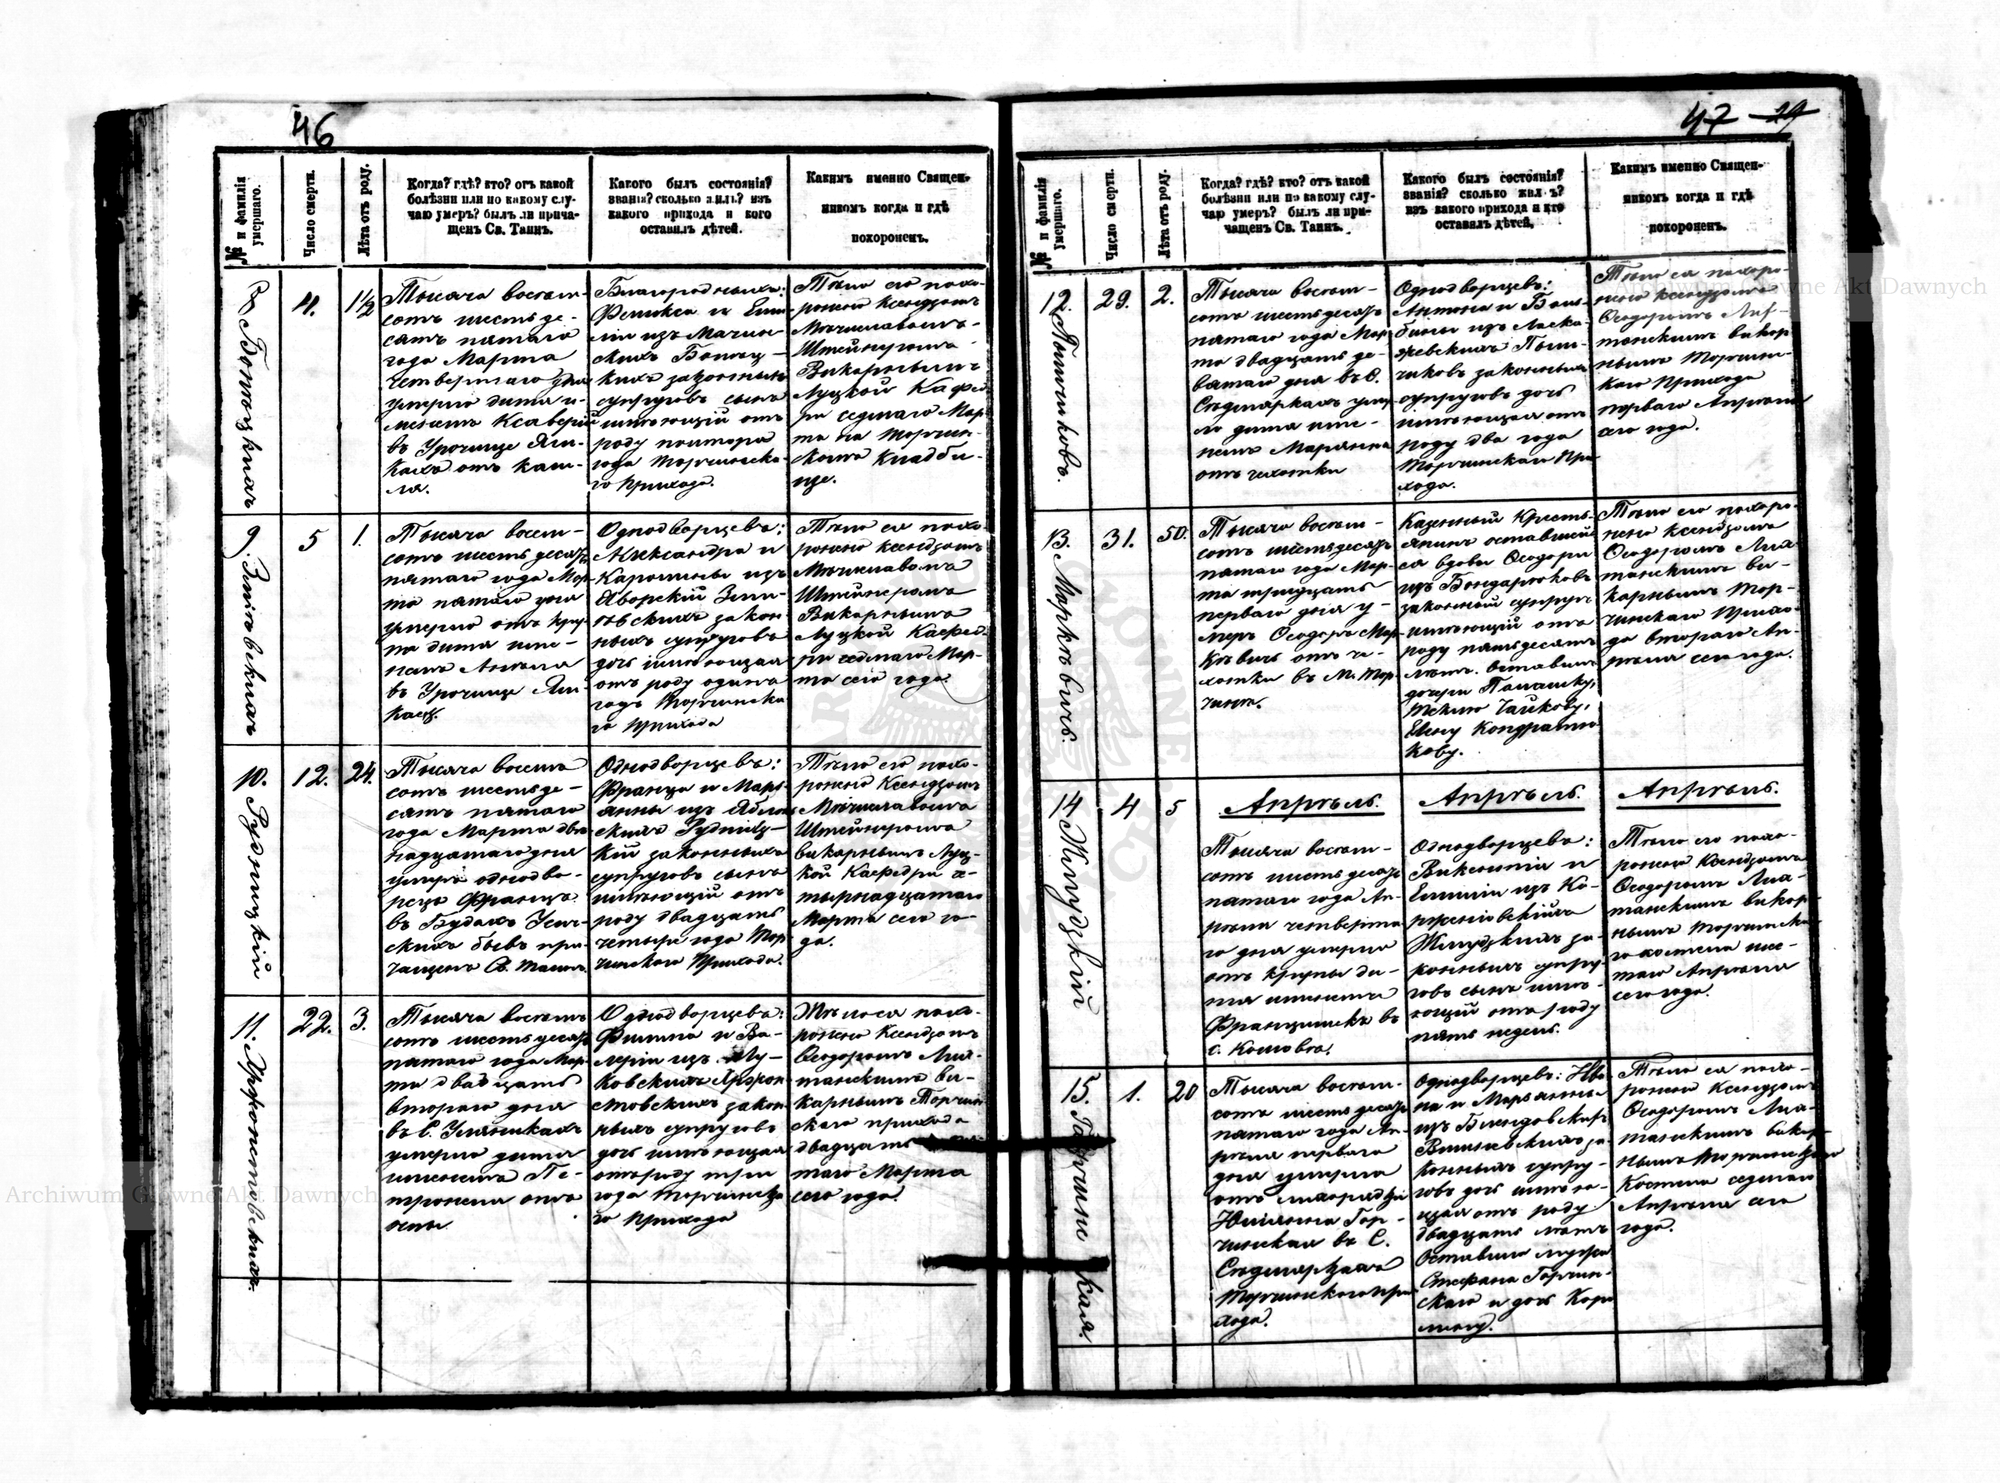 46
№ и фамилія умершаго.
Число смерти.
Лѣта отъ роду.
Когда? гдѣ? кто? отъ какой
болѣзни или по какому слу-
чаю умеръ? былъ ли прича-
щенъ Св. Таинъ.
Какого былъ состоянія?
званія? сколько жилъ? изъ
какого прихода и кого
оставилъ дѣтей.
Какимъ именно Священ-
никомъ когда и гдѣ
похороненъ.
8
4.
1½
Тысяча восем-
сотъ шестьде-
сятъ пятаго
года Марта
четвертаго дня
умерло дитя и-
менемъ Ксаверій
въ Урочище Яли-
кахъ отъ каш-
ля.
Благородныхъ:
Феликса и Еми-
ліи изъ
законныхъ
супруговъ сынъ
имеющій отъ
роду полтора
года Торчинска-
го Прихода.
Тѣло его похо-
ронено Ксендзомъ
Мѣчиславомъ
Штейнеромъ
Викарнымъ
Луцкой Кафед-
ри седмаго Мар-
та на Торчин-
скомъ кладби-
ще.
9.
5
1.
Тысяча восем-
сотъ шестьдесятъ
пятаго года Мар-
та пятаго дня
умерло отъ кру-
па дитя име-
немъ
въ Урочище Яли-
кахъ.
Однодворцевъ:
Александра и
Каролины изъ
Яворскій
закон-
ныхъ супруговъ
дочь имеющая
отъ роду одинъ
годъ Торчинска-
го Прихода
Тѣло ея похо-
ронено ксендзомъ
Мѣчиславомъ
Штейнеромъ
Викарнымъ
Луцкой Кафед-
ри седмаго Мар-
та сего года.
10. Рудницкій
12.
24.
Тысяча восемъ
сотъ шестьде-
сятъ пятаго
года Марта два
надцатаго дня
умеръ однодво-
рецъ Францъ
въ Будахъ
скихъ бывъ при-
чащенъ Св. Таинъ.
Однодворцевъ:
Франца и Марь-
янны изъ Яблон
скихъ Рудниц-
кій законныхъ
супруговъ сынъ
имеющій отъ
роду двадцать
четыре года Тор
чинскаго Прихода.
Тѣло его похо-
ронено Ксендзомъ
Мѣчиславомъ
Штейнеромъ
викарнымъ Луц-
кой Кафедри че-
тырнадцатаго
Марта сего го-
да.
11.
22.
3.
Тысяча восемъ
сотъ шестьдесятъ
пятаго года Мар-
та двадцать
втораго дня
въ С.
умерло дитя
именемъ Пе-
тронеля отъ
оспы
Однодворцевъ:
Филипа и Ва-
леріи изъ
закон
ныхъ супруговъ
дочь имеющая
отъ роду три
года Торчинска
го Прихода
Тѣло ея похо-
ронено Ксендзомъ
Ѳеодоромъ Лип-
танскимъ ви-
карнымъ Торчин
скаго прихода
двадцать
таго Марта
сего года.
47 29
№ и фамилія умершаго.
Число смерти.
Лѣта отъ роду.
Когда? гдѣ? кто? отъ какой
болѣзни или по какому слу-
чаю умеръ? былъ ли при-
чащенъ Св. Таинъ.
Какого былъ состоянія?
званія? сколько жилъ?
изъ какого прихода и кто
оставилъ дѣтей.
Какимъ именно Священ-
никомъ когда и гдѣ
похороненъ.
12.
29.
2.
Тысяча восем-
сотъ шестьдесятъ
пятаго года Мар-
та двадцать де-
вятаго дня въ С.
Седмяркахъ умер
ло дитя име-
немъ Марянна
отъ чахотки
Однодворцевъ:
Антона и Баль-
бины изъ Ласка-
ржевскихъ
законныхъ
супруговъ дочь
имеющая отъ
роду два года
Торчинскаго При
хода.
Тѣло ея похоро-
нено Ксендзомъ
Ѳеодоромъ Лип-
танскимъ викар
нымъ Торчинс-
каго Прихода
перваго Апрѣля
сего года.
13. Маркѣвичъ.
31.
50.
Тысяча восем-
сотъ шестьдесятъ
пятаго года Мар-
та тридцать
перваго дня у-
меръ Ѳеодоръ Мар-
кѣвичъ отъ ча-
хотки въ М. Тор-
чинѣ.
Казенный Кресть-
янинъ оставшей
ся вдовы Ѳеодоры
изъ Бондаруковъ
законный супругъ
имеющій отъ
роду пятьдесятъ
лѣтъ. Оставилъ
дочери
Теклю
Елену Кондратю
кову.
Тѣло его похоро-
нено Ксендзомъ
Ѳеодоромъ Лип-
танскимъ ви-
карнымъ Тор-
чинскаго Прихо-
да втораго Ап-
рѣля сего года.
14 Жмудзкій
4
5
Апрѣль.
Апрѣль.
Апрѣль.
Тысяча восем-
сотъ шестьдесятъ
пятаго года Ап-
рѣля четверта
го дня умерло
отъ крупы ди-
тя именемъ
Францишекъ въ
с.
Однодворцевъ:
Викентія и
Емиліи изъ
Жмудзкихъ за-
конныхъ супру-
говъ сынъ име-
ющій отъ роду
пять недель.
Тѣло его похо-
ронено Ксендзомъ
Ѳеодоромъ Лип-
танскимъ викар-
нымъ Торчинска
го костела шес-
таго Апрѣля
сего года.
15. Горчинская.
1.
20
Тысяча восем-
сотъ шестьдесятъ
пятаго года Ап-
рѣля перваго
дня умерла
отъ лихорадки
Юліянна Гор-
чинская въ С.
Седмяркахъ
Торчинскаго при
хода.
Однодворцевъ: Ива-
на и Марьянны
изъ
за-
конныхъ супру-
говъ дочь имею-
щая отъ роду
двадцать лѣтъ
Оставила мужа
Стефана Горчин-
скаго и дочь Каро
лину.
Тѣло ея похо-
ронено Ксендзомъ
Ѳеодоромъ Лип-
танскимъ викар-
нымъ Торчинскаго
Костела седмаго
Апрѣля сего
года.
Archiwum Główne Akt Dawnych
Archiwum Główne Akt Dawnych